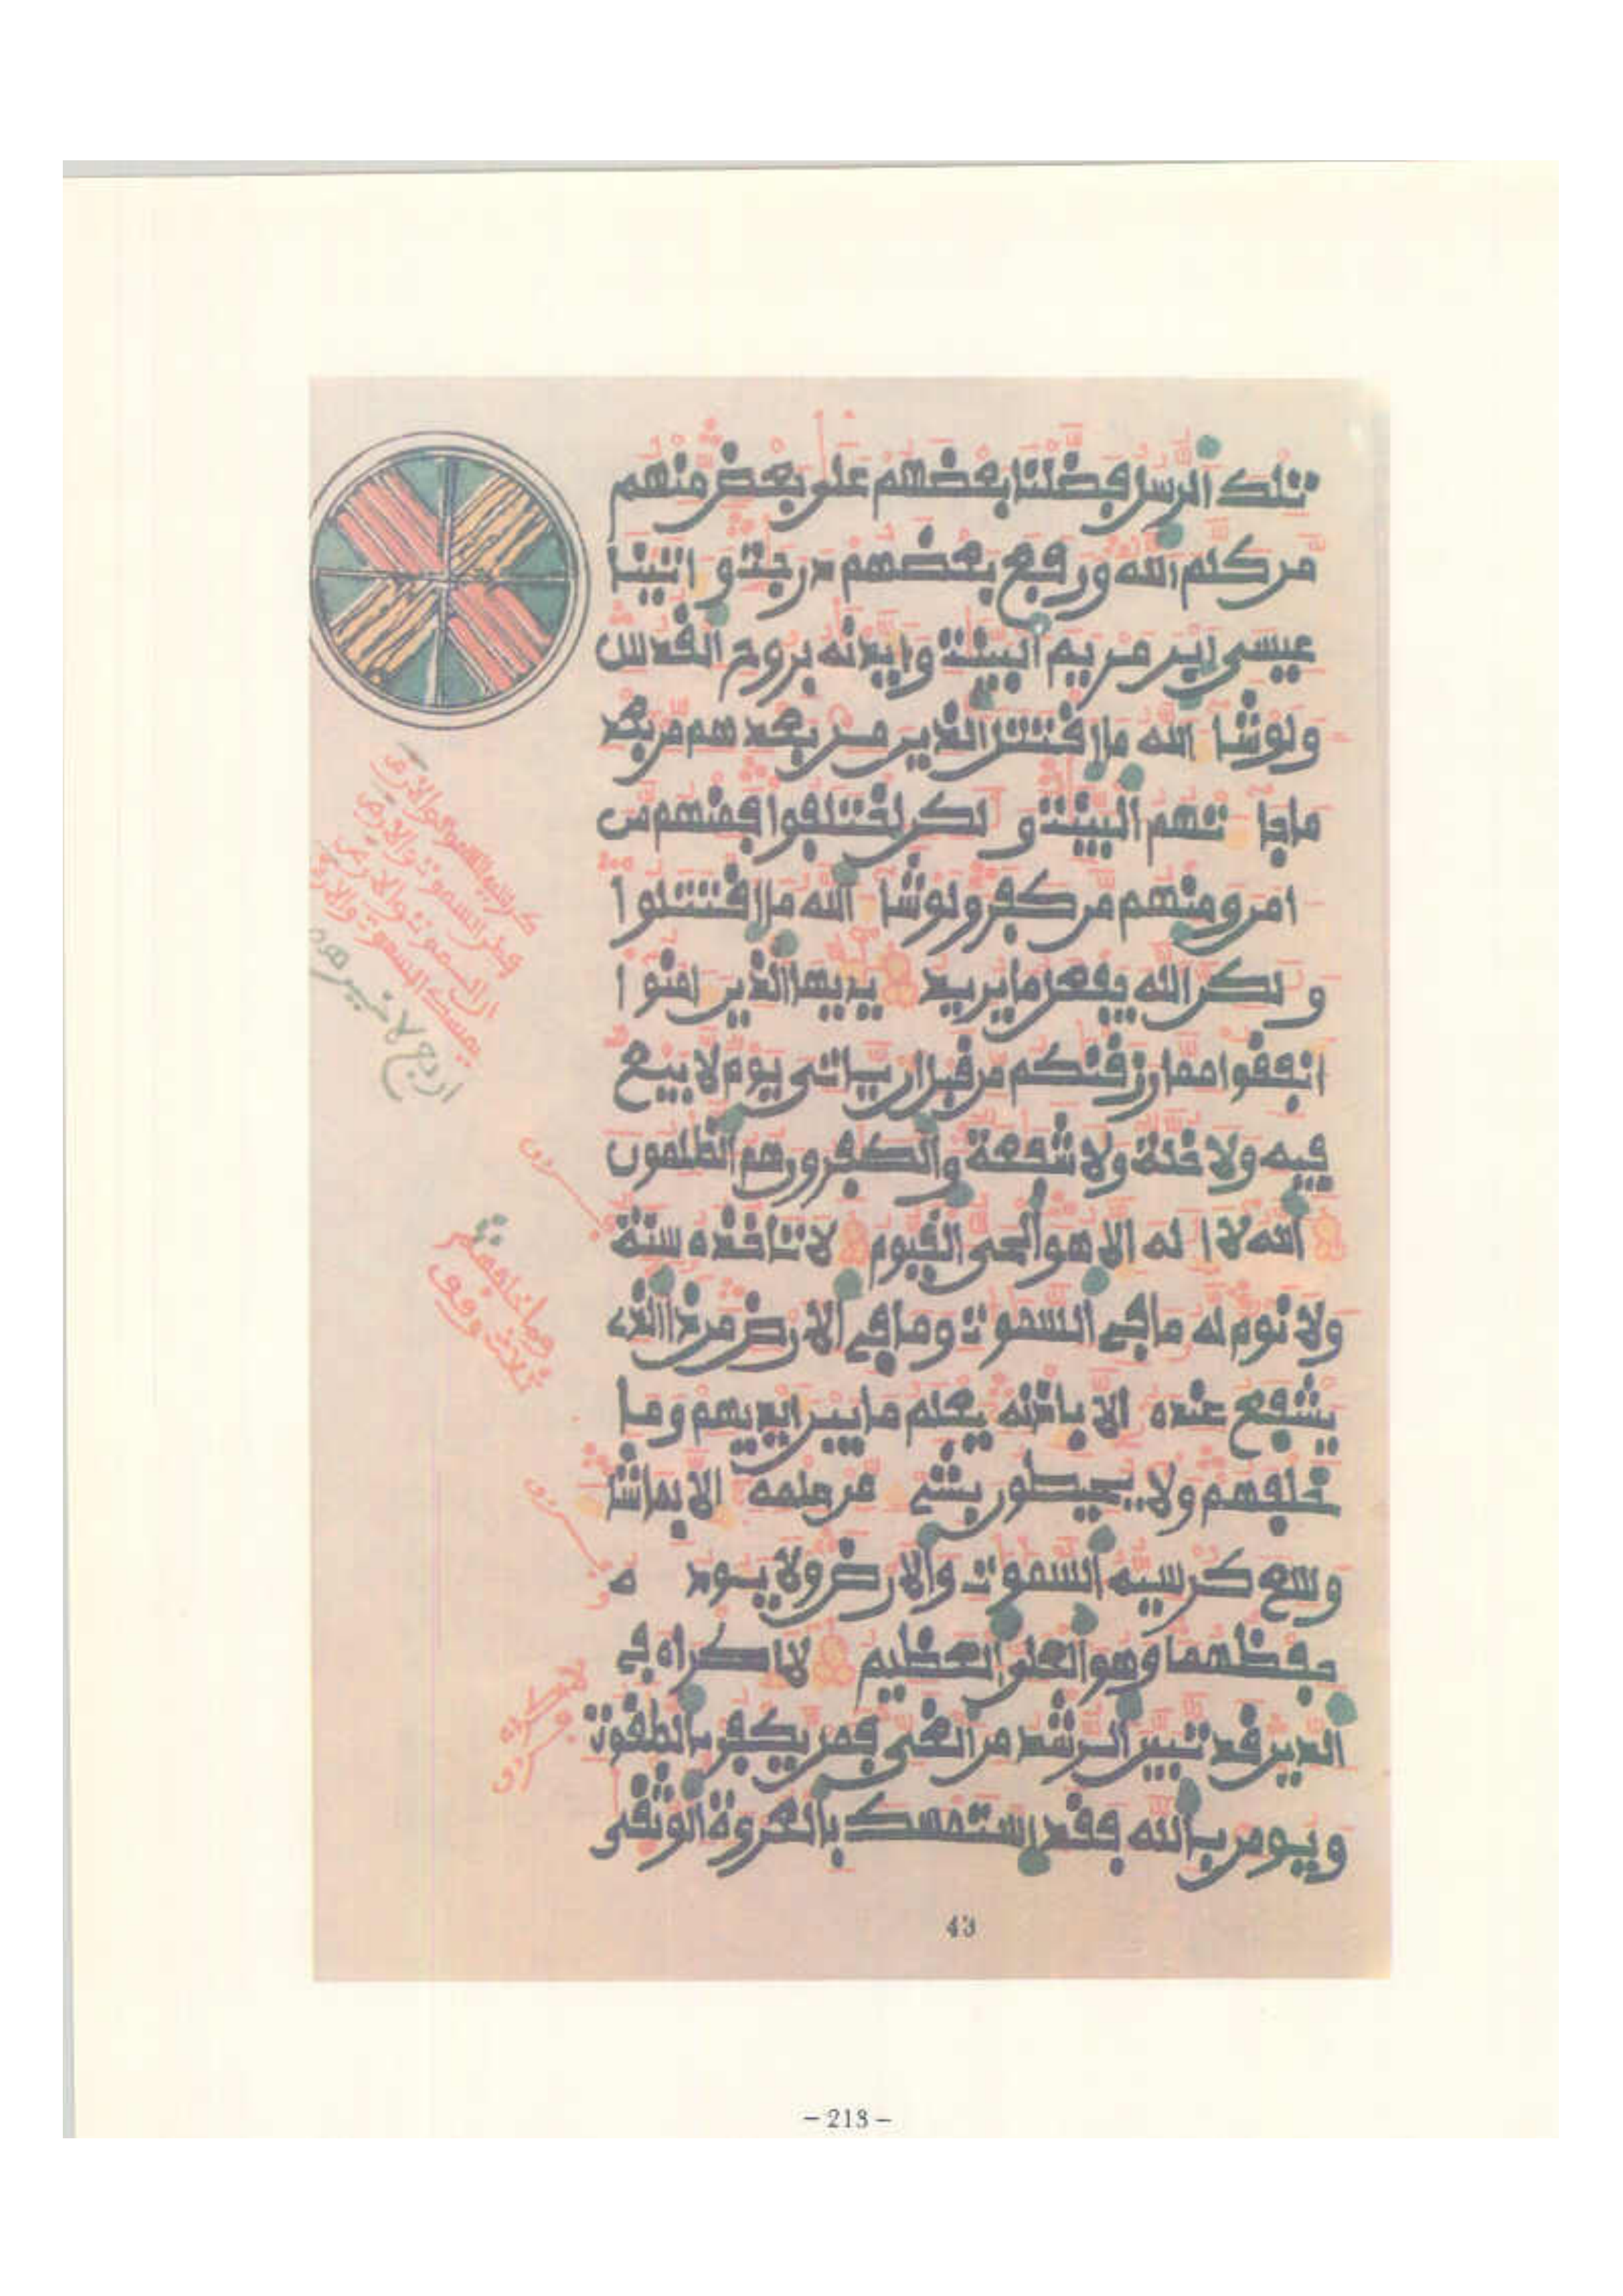 تلك الرسل فضلنا بعضهم على بعض منهم
من كلم الله ورفع بعضهم درجت و اتينا
عيسى ابن مريم البينت وايدنه بروح القدس
ولوشا الله ما اقتتل الذين من بعدهم من بعد
ماجا تهم البينت و لكن اختلفوا فمنهم من
امن ومنهم من كفر ولوشا الله ما اقتتلوا
و لكن الله يفعل ما يريد يايها الذين امنوا
انفقوا مما رزقنكم من قبل ان ياتي يوم لا بيع
فيه ولا خلة ولا شفعة والكفرون هم الظلمون
الله لا اله الا هو الحي القيوم لا تاخذه سنة
ولا نوم له ما في السموت وما في الارض من ذا الذي
يشفع عنده الا باذنه يعلم ما بين ايديهم وما
خلفهم ولا يحيطون بشي من علمه الا بما شا
وسع كرسيه السموت والارض ولا يـود ه
حفظهما وهو العلي العظيم لا اكراه في
الدين قد تبين الرشد من الغي فمن يكفر بالطغوت
ويومن بالله فقد استمسك بالعروة الوثقى
43
- 213 -